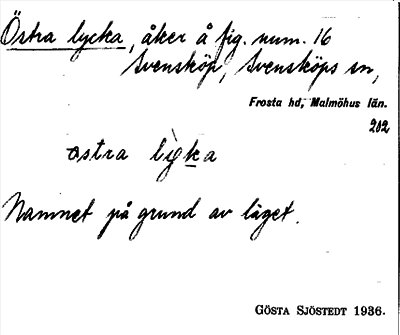 Östra lycka, åker å fig. num. 16
Svensköp, Svensköps sn,
Frosta hd, Malmöhus län.
202
astra lyka
Namnet på grund av läget.
GÖSTA SJÖSTEDT 1936.